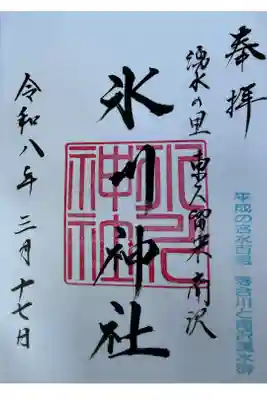 奉拝
湧水の里 東久留米 南沢
氷川神社
令和八年 三月 十七日
氷川神社
平成の名水百選 落合川と南沢湧水群